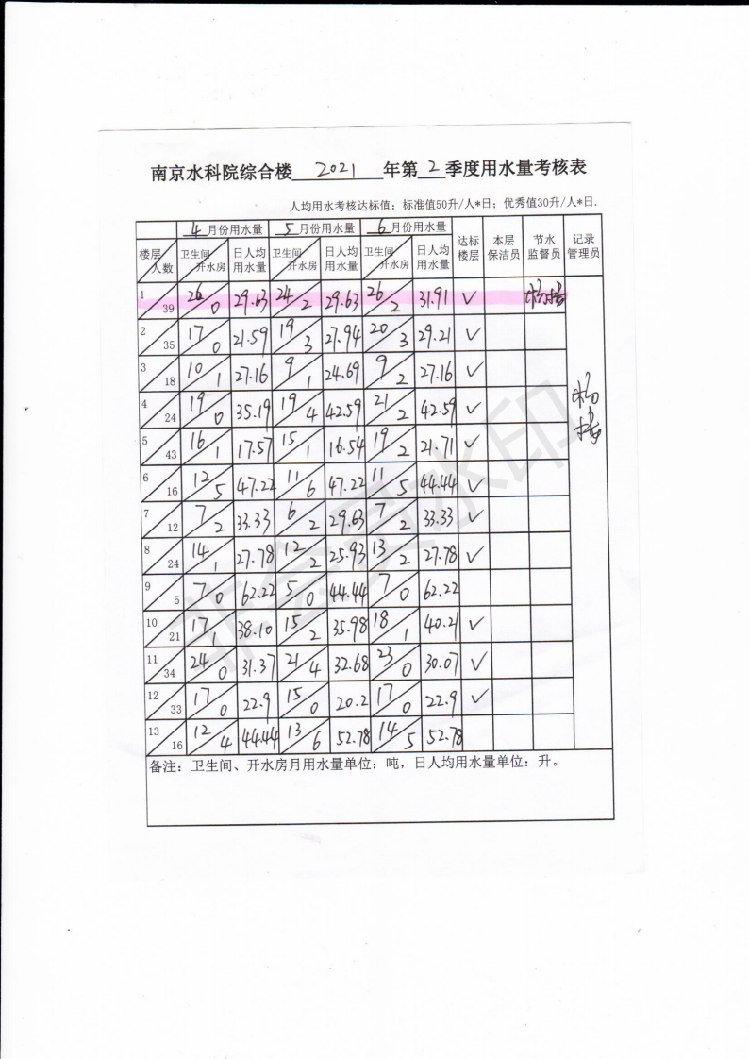 南京水科院综合楼 2021 年第 2 季度用水量考核表
人均用水考核达标值：标准值50升/人*日；优秀值30升/人*日.
楼层 人数 4月份用水量 5月份用水量 6月份用水量 达标楼层 本层保洁员 节水监督员 记录管理员
卫生间 开水房 日人均用水量 卫生间 开水房 日人均用水量 卫生间 开水房 日人均用水量
1 39 26 0 29.63 24 2 29.63 26 2 31.91 √
2 35 17 0 21.59 19 3 27.94 20 3 29.21 √
3 18 10 1 27.16 9 1 24.69 9 2 27.16 √
4 24 19 0 35.19 19 4 42.59 21 2 42.59 √
5 43 16 1 17.57 15 1 16.54 19 2 21.71 √
6 16 12 5 47.22 11 6 47.22 11 5 44.44 √
7 12 7 2 33.33 6 2 29.63 7 2 33.33 √
8 24 14 1 27.78 12 2 25.93 13 2 27.78 √
9 5 7 0 62.22 5 0 44.44 7 0 62.22
10 21 17 1 38.10 15 2 35.98 18 1 40.21 √
11 34 24 0 31.37 21 4 32.68 23 0 30.07 √
12 33 17 0 22.9 15 0 20.2 17 0 22.9 √
13 16 12 4 44.44 13 6 52.78 14 5 52.78
备注：卫生间、开水房月用水量单位：吨，日人均用水量单位：升。
非会员水印